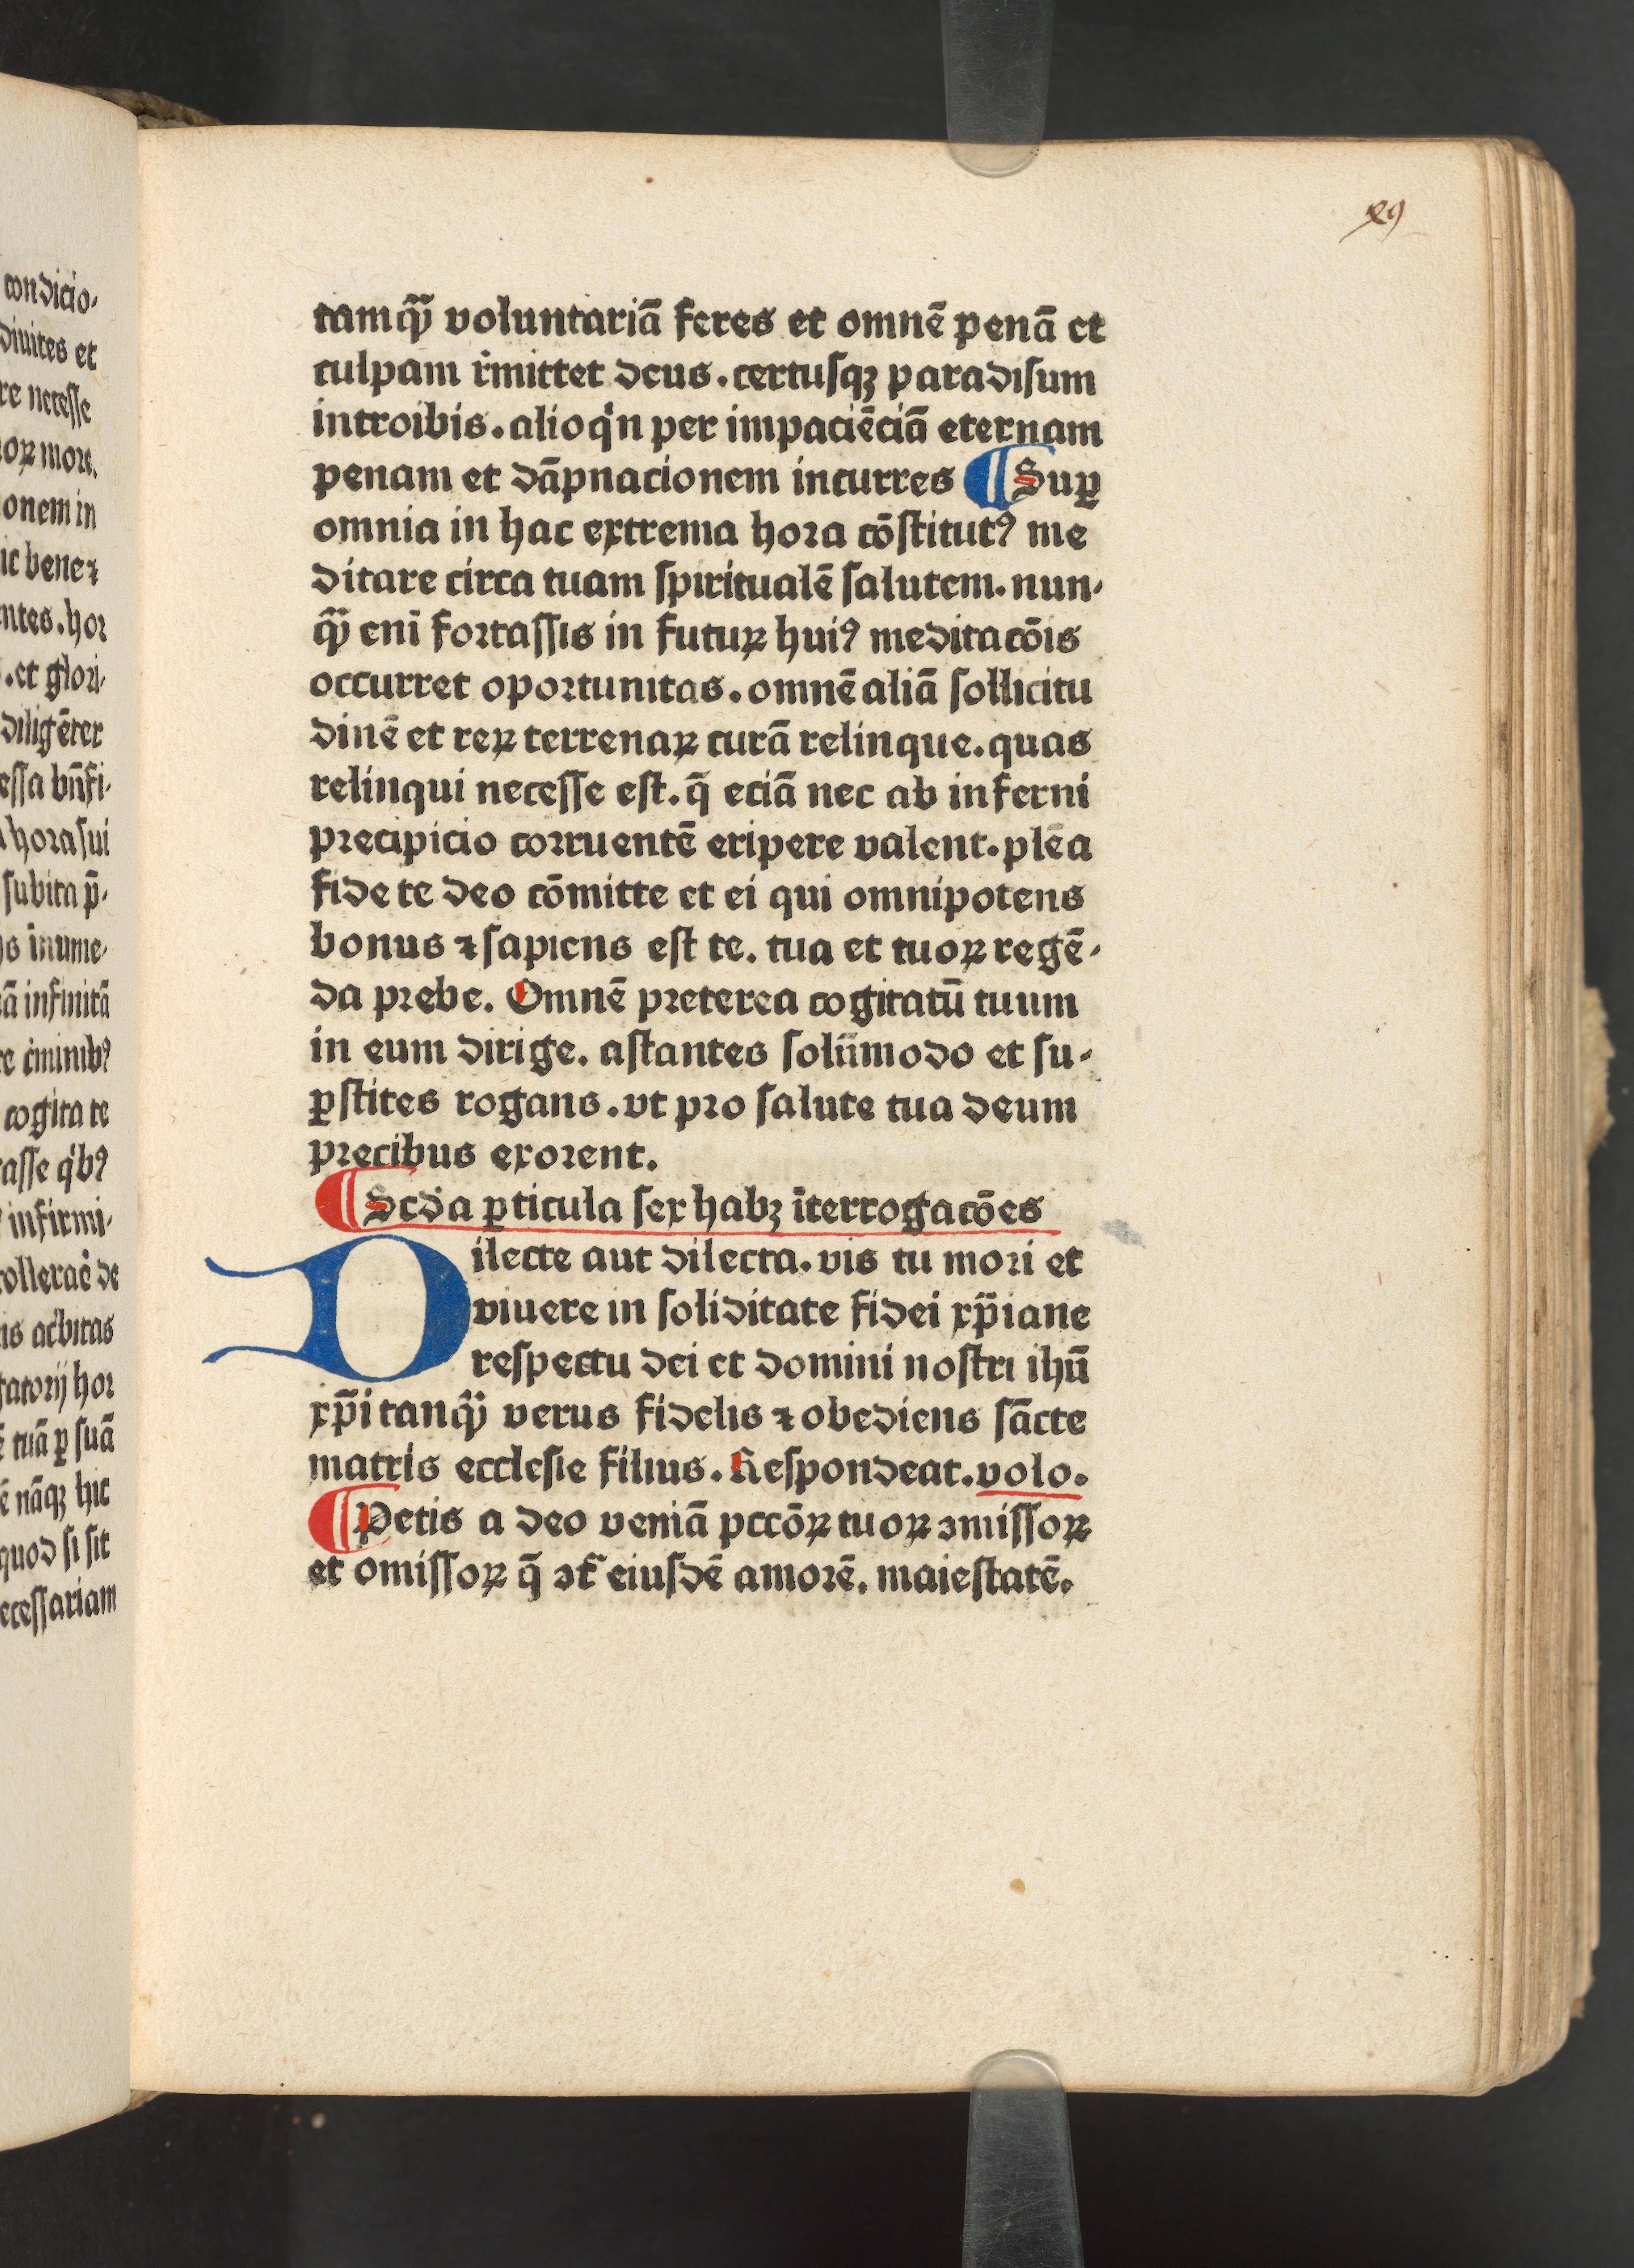 condicio-
diuites et
re necesse
oꝝ more.
onem in
ic bene ⁊
ntes. hor
. et glori-
diligēter
essa bn̄fi-
hora sui
subita p̄-
inume-
ā infinitā
cogita te
asse qͥbꝰ
infirmi-
tollerac̄ de
gatorij hor
tuā ꝑ suā
ē nāqꝫ hic
quod si sit
ecessariam
29
tamqᷓ voluntariā feres et omnē penā et
culpam rͥmittet deus. certusqꝫ paradisum
introibis. alioqͥn per impaciēciā eternam
penam et dāpnacionem incurres ¶ Suꝑ
omnia in hac extrema hora cōstitutꝰ me
ditare circa tuam spiritualē salutem. nun-
qᷓ eni̅ fortassis in futuꝝ huiꝰ meditacōis
occurret oportunitas. omnē aliā sollicitu
dinē et reꝝ terrenaꝝ curā relinque. quas
relinqui necesse est. q̄ eciā nec ab inferni
precipicio corruentē eripere valent. plēa
fide te deo cōmitte et ei qui omnipotens
bonus ⁊ sapiens est te. tua et tuoꝝ regē-
da prebe. Omnē preterea cogitatū tuum
in eum dirige. astantes solūmodo et su-
ꝑstites rogans. vt pro salute tua deum
precibus exorent.
¶ Scda̅ ꝑticula sex habꝫ īterrogacōes
Dilecte aut dilecta. vis tu mori et
viuere in soliditate fidei xp̄iane
respectu dei et domini nostri ihū
xp̄i tanqᷓ verus fidelis ⁊ obediens sācte
matris ecclesie filius. Respondeat. volo.
¶ Petis a deo veniā pccōꝝ tuoꝝ ↄmissoꝝ
et omissoꝝ q̄ ↄt̄ eiusdē amorē. maiestatē.